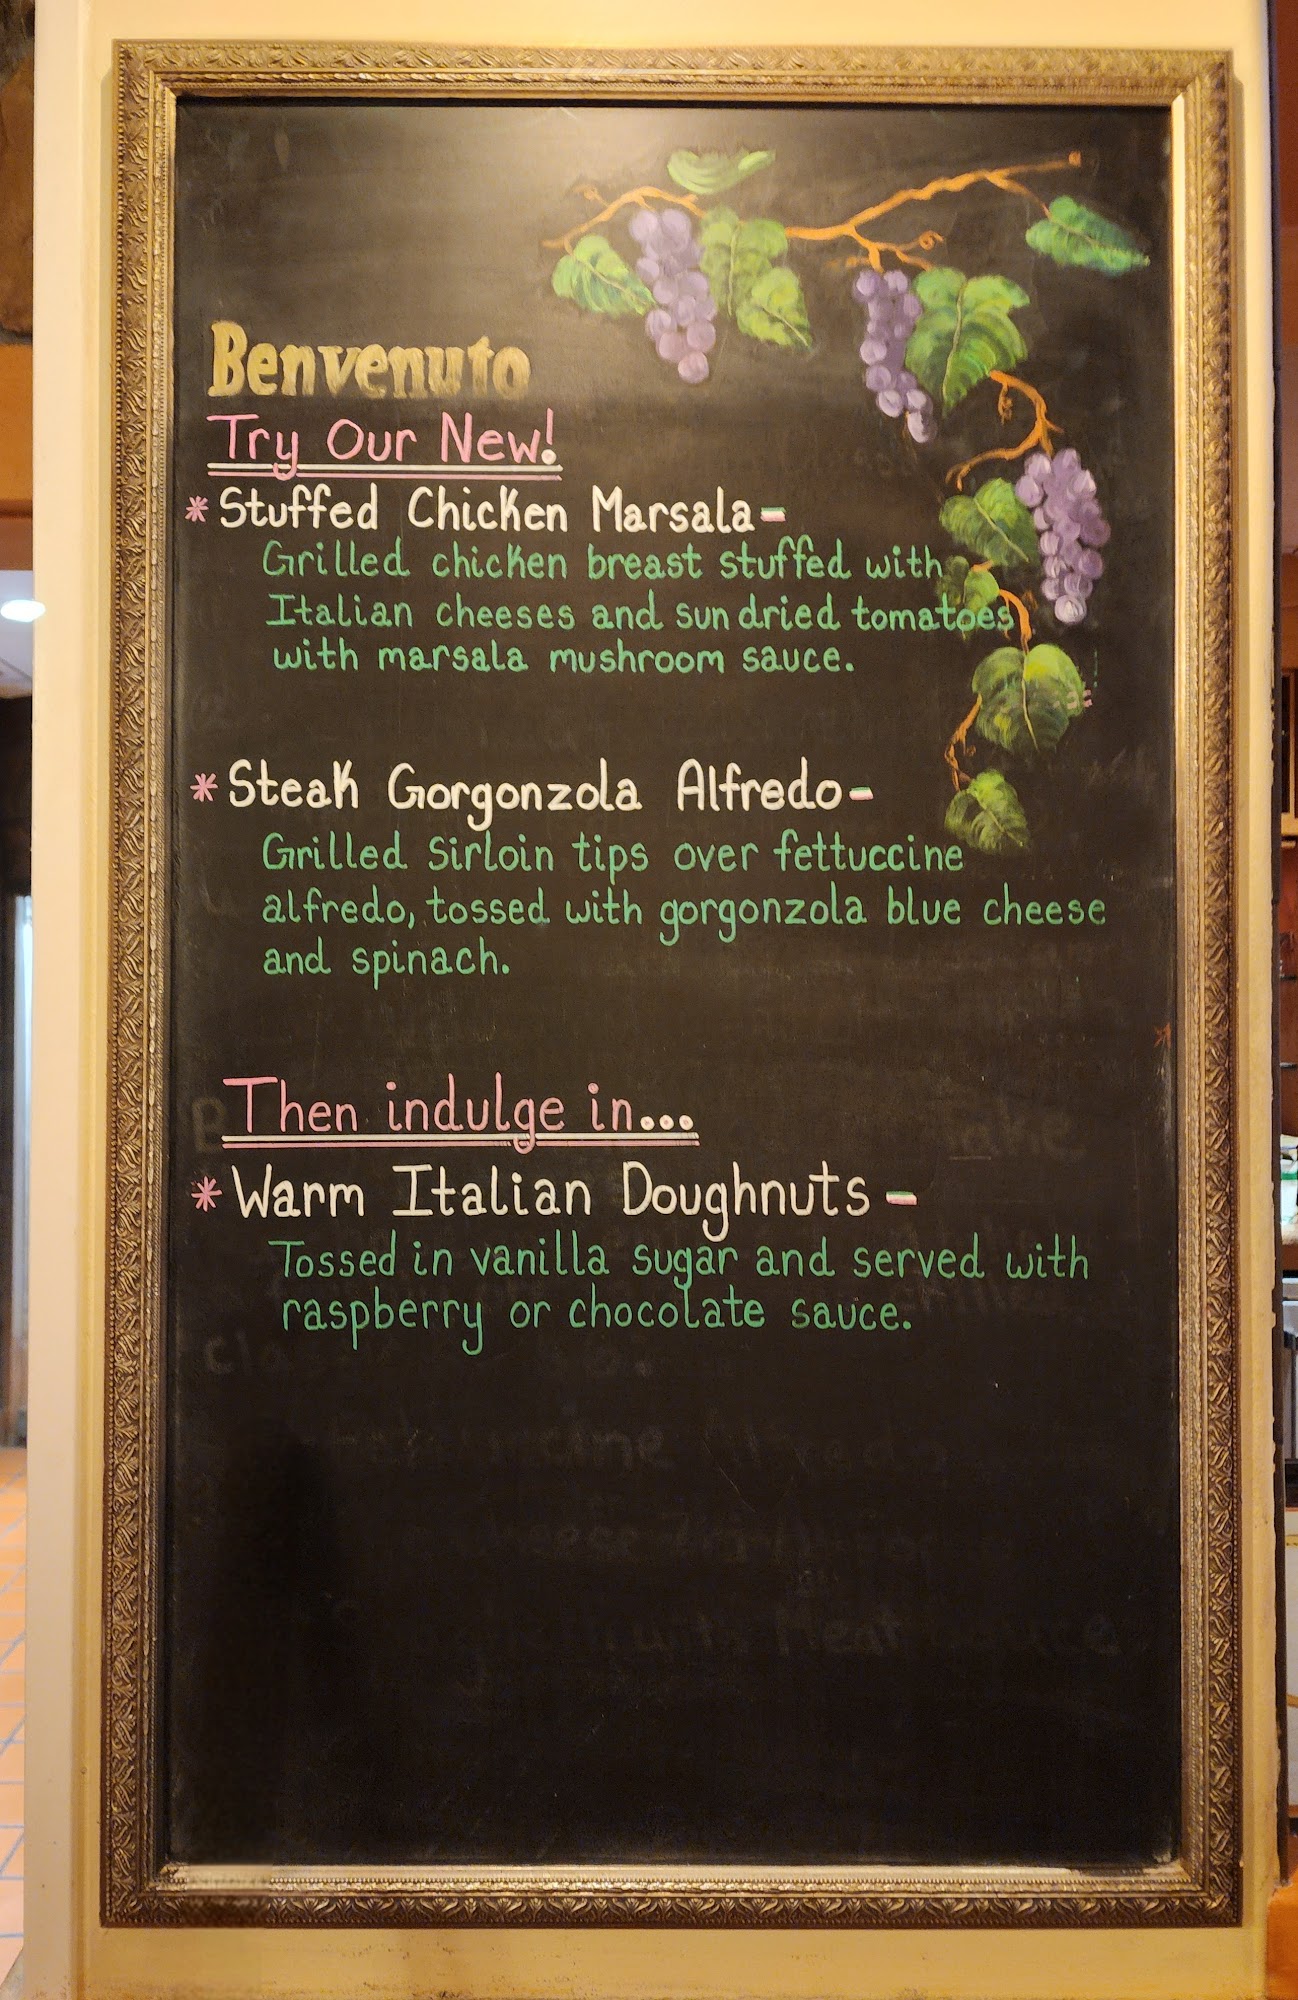 Benvenuto
Try Our New!
* Stuffed Chicken Marsala -
Grilled chicken breast stuffed with
Italian cheeses and sun dried tomatoes
with marsala mushroom sauce.
* Steak Gorgonzola Alfredo -
Grilled Sirloin tips over fettuccine
alfredo, tossed with gorgonzola blue cheese
and spinach.
Then indulge in...
* Warm Italian Doughnuts -
Tossed in vanilla sugar and served with
raspberry or chocolate sauce.